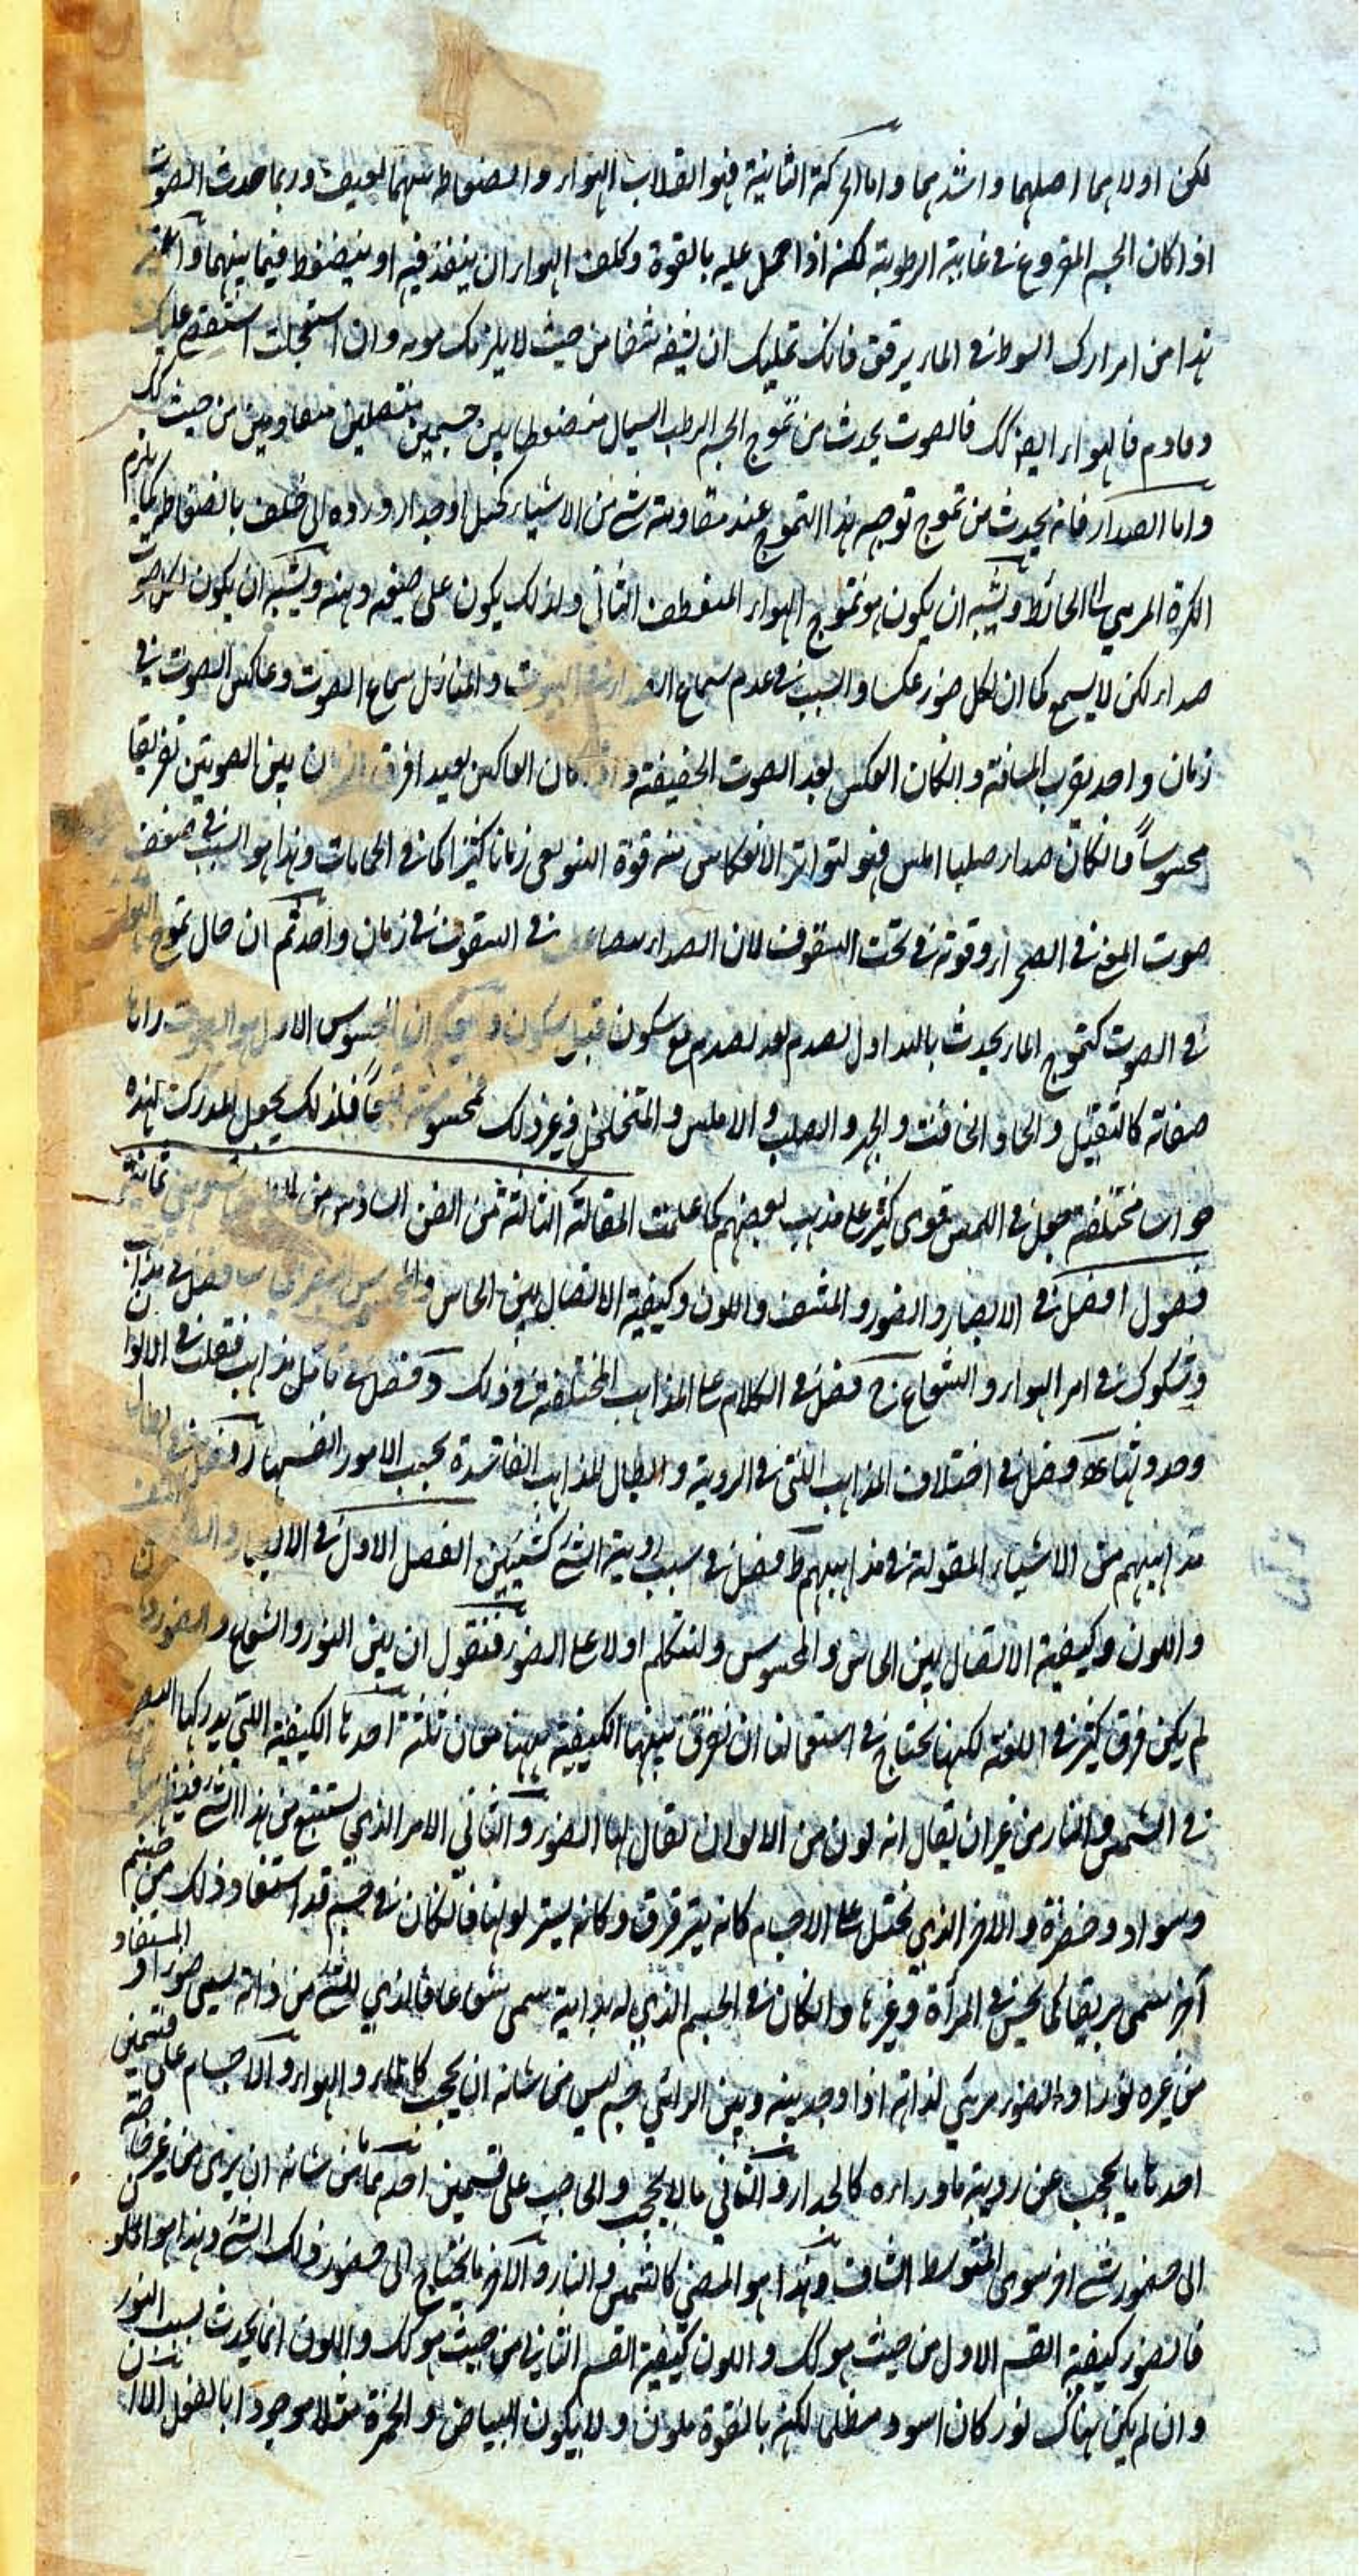 لكن اولاهما اصلهما واشدهما واما الحركة الثانية فهو انقلاب الهواء وانضغاطه بينهما بعنف وربما حدث الصوت
اذا كان الجسم المقروع فى غاية الرطوبة لكنه اذا حمل عليه بالقوة وكلف الهواء ان ينفذ فيه او ينضغط فيما بينهما
هذا من امرارك السوط فى الماء برفق فانك يمكنك ان تشقه شقا من حيث لا يلزمك مونه وان استعجلت استقصع عليك
وقاوم فالهواء ايضا كك فالصوت يحدث من تموج الجسم الرطب السيال منضغطا بين جسمين متصلين متقاومين من حيث كك
واما الصداء فانه يحدث من تموج توجبه هذا التموج عند مقاومته شئ من الاشياء كجبل او جدار ورده الى خلف بالضغاط كما يلزم
الكرة المرمى بها الحائط ويشبه ان يكون هو تموج الهواء المنعطف الثانى ولذلك يكون على صفته وهيئته ويشبه ان يكون لكل صوت
صداء لكن لا يسمع كما ان لكل ضوء عكسا والسبب فى عدم سماع الصداء فى البيوت والمنازل سماع الصوت وعاكس الصوت فى
زمان واحد بقرب المسافة وانكان العكس بعد الصوت الحقيقة و كان العاكس بعيدا فرق بين الصوتين تفريقا
محسوسا فانكان صداء صلبا املس فهو لتواتر الانعكاس منه قوة النبو يبقى زمانا كثيرا كما فى الحمامات وهذا هو السبب فى ضعف
صوت المغنى فى الصحراء وقوته فى تحت السقوف لان الصداء فى السقوف فى زمان واحد ثم ان حال تموج الهواء
فى الصوت كتموج الماء يحدث بالتداول بصدم بعد صدم مع سكون قبل سكون المحسوس الاول هو الصوت واما
صفاته كالثقيل والحاد الخافت والجهر والصلب والاملس والمتخلخل وغير ذلك فمحسوسة فلذلك يجعل المدرك لهذه
حواس مختلفة جعل فى اللمس قوى كثيرة على مذهب بعضهم كما علمت المقالة الثالثة من الفن السادس من ثمانية
فصول ا فصل فى الابصار والضوء والمشف واللون وكيفية الاتصال بين الحاس والمحسوس فصل فى مذاهب
وشكوك فى امر الهواء والشعاع ج فصل فى الكلام على المذاهب المختلفة فى ذلك د فصل فى تأمل مذاهب فى الالوان
وحدوثها فصل فى اختلاف المذاهب التى فى الروية وابطال المذاهب الفاسدة بحسب الامور انفسها ز فصل فى ابطال
مذاهبهم من الاشياء المقولة فى مذاهبهم ط فصل فى سبب روية الشئ كشيئين الفصل الاول فى الابصار
واللون وكيفية الاتصال بين الحاس والمحسوس ولنتكلم اولا على الضوء فنقول ان بين النور والشعاع والضوء
لم يكن فرق كثير فى اللغة لكنها يحتاج فى استعمالنا ان نفرق بينها الكيفية ههنا معان ثلثة احدها الكيفية التى يدركها البصر
فى الشمس والنار من غير ان يقال انه لون من الالوان يقال لها الضوء والثانى الامر الذى يستتبع من هذا الشئ
وسواد وخضرة والاخر الذى يخيل على الاجسام كانه يترقرق وكانه يستر لونها فانكان فى جسم قد استفاد ذلك من جسم
آخر سمى بريقا كما يحس فى المرآة وغيرها وانكان فى الجسم الذى له بذاته سمى شعاعا فالذى للشئ من ذاته يسمى ضوءا والمستفاد
من غيره نورا والضوء مرئى لذاته اذا وجد بينه وبين الرائى جسم ليس من شانه ان يحجب كالماء والهواء والاجسام على قسمين
احدهما ما يحجب عن روية ما وراءه كالجدار والثانى ما لا يحجب والحاجب على قسمين احدهما من شانه ان يرى من غير حاجة
الى حضور شئ آخر سوى المتوسط الشاف وهذا هو المضئ كالشمس والنار والاخر ما يحتاج الى حضور ذلك الشئ وهذا هو الملون
فالضوء كيفية القسم الاول من حيث هو كك واللون كيفية القسم الثانى من حيث هو كك واللون انما يحدث بسبب النور
وان لم يكن هناك نور كان اسود مظلما لكنه بالقوة ملون ولا يكون البياض والحمرة مثلا موجودا بالفعل